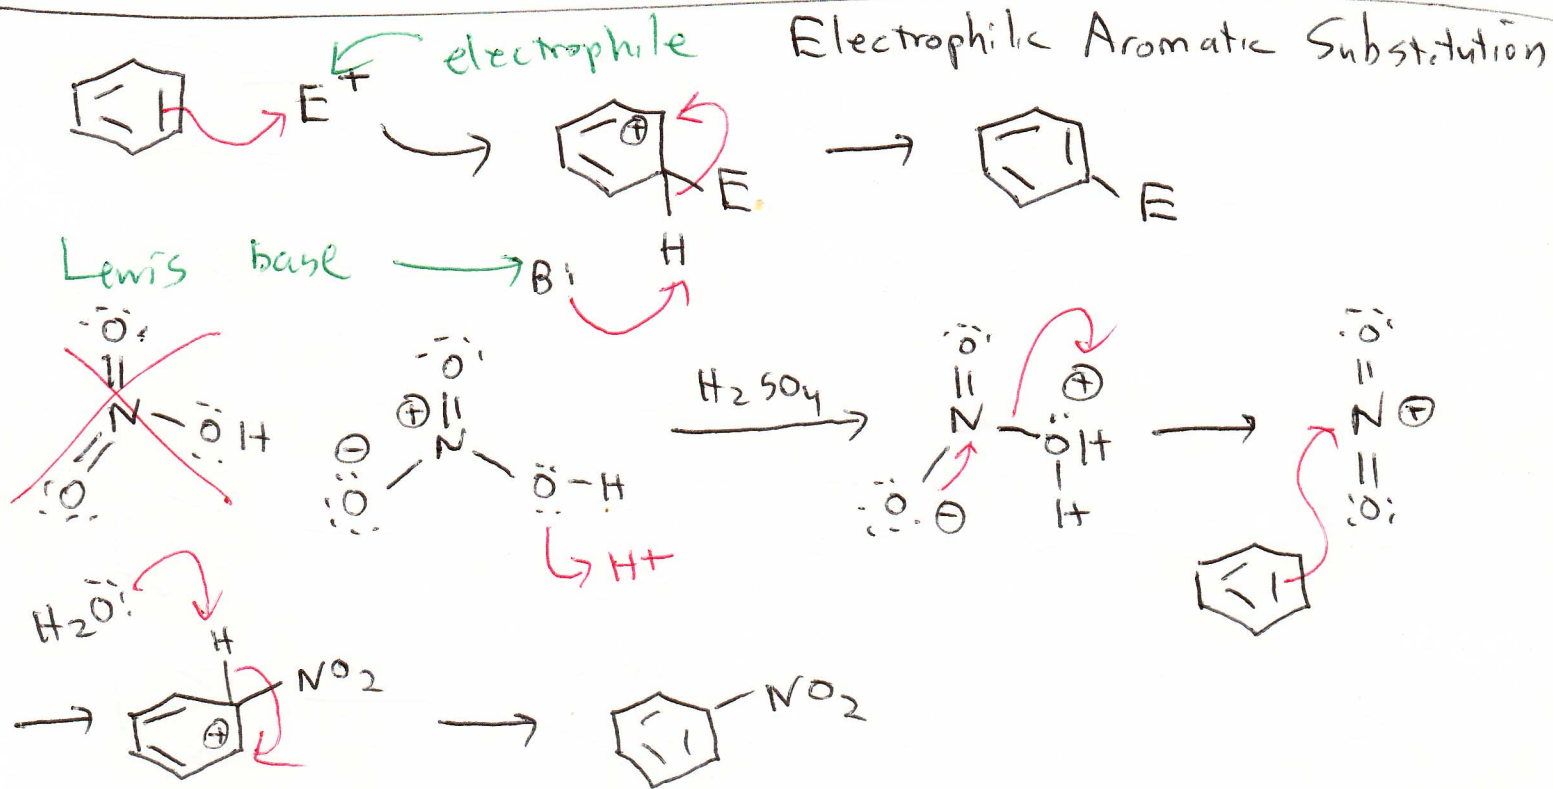 electrophile Electrophilic Aromatic Substitution
E+
⊕
E
H
E
Lewis base → B:
:O: || N – OH = O
⊕ :O: || N ⊖ :O: O–H → H+
H2SO4
:O: || N ⊕ OH H :O: ⊖
:O: || N ⊕ || :O:
H2O:
H
NO2
⊕
NO2